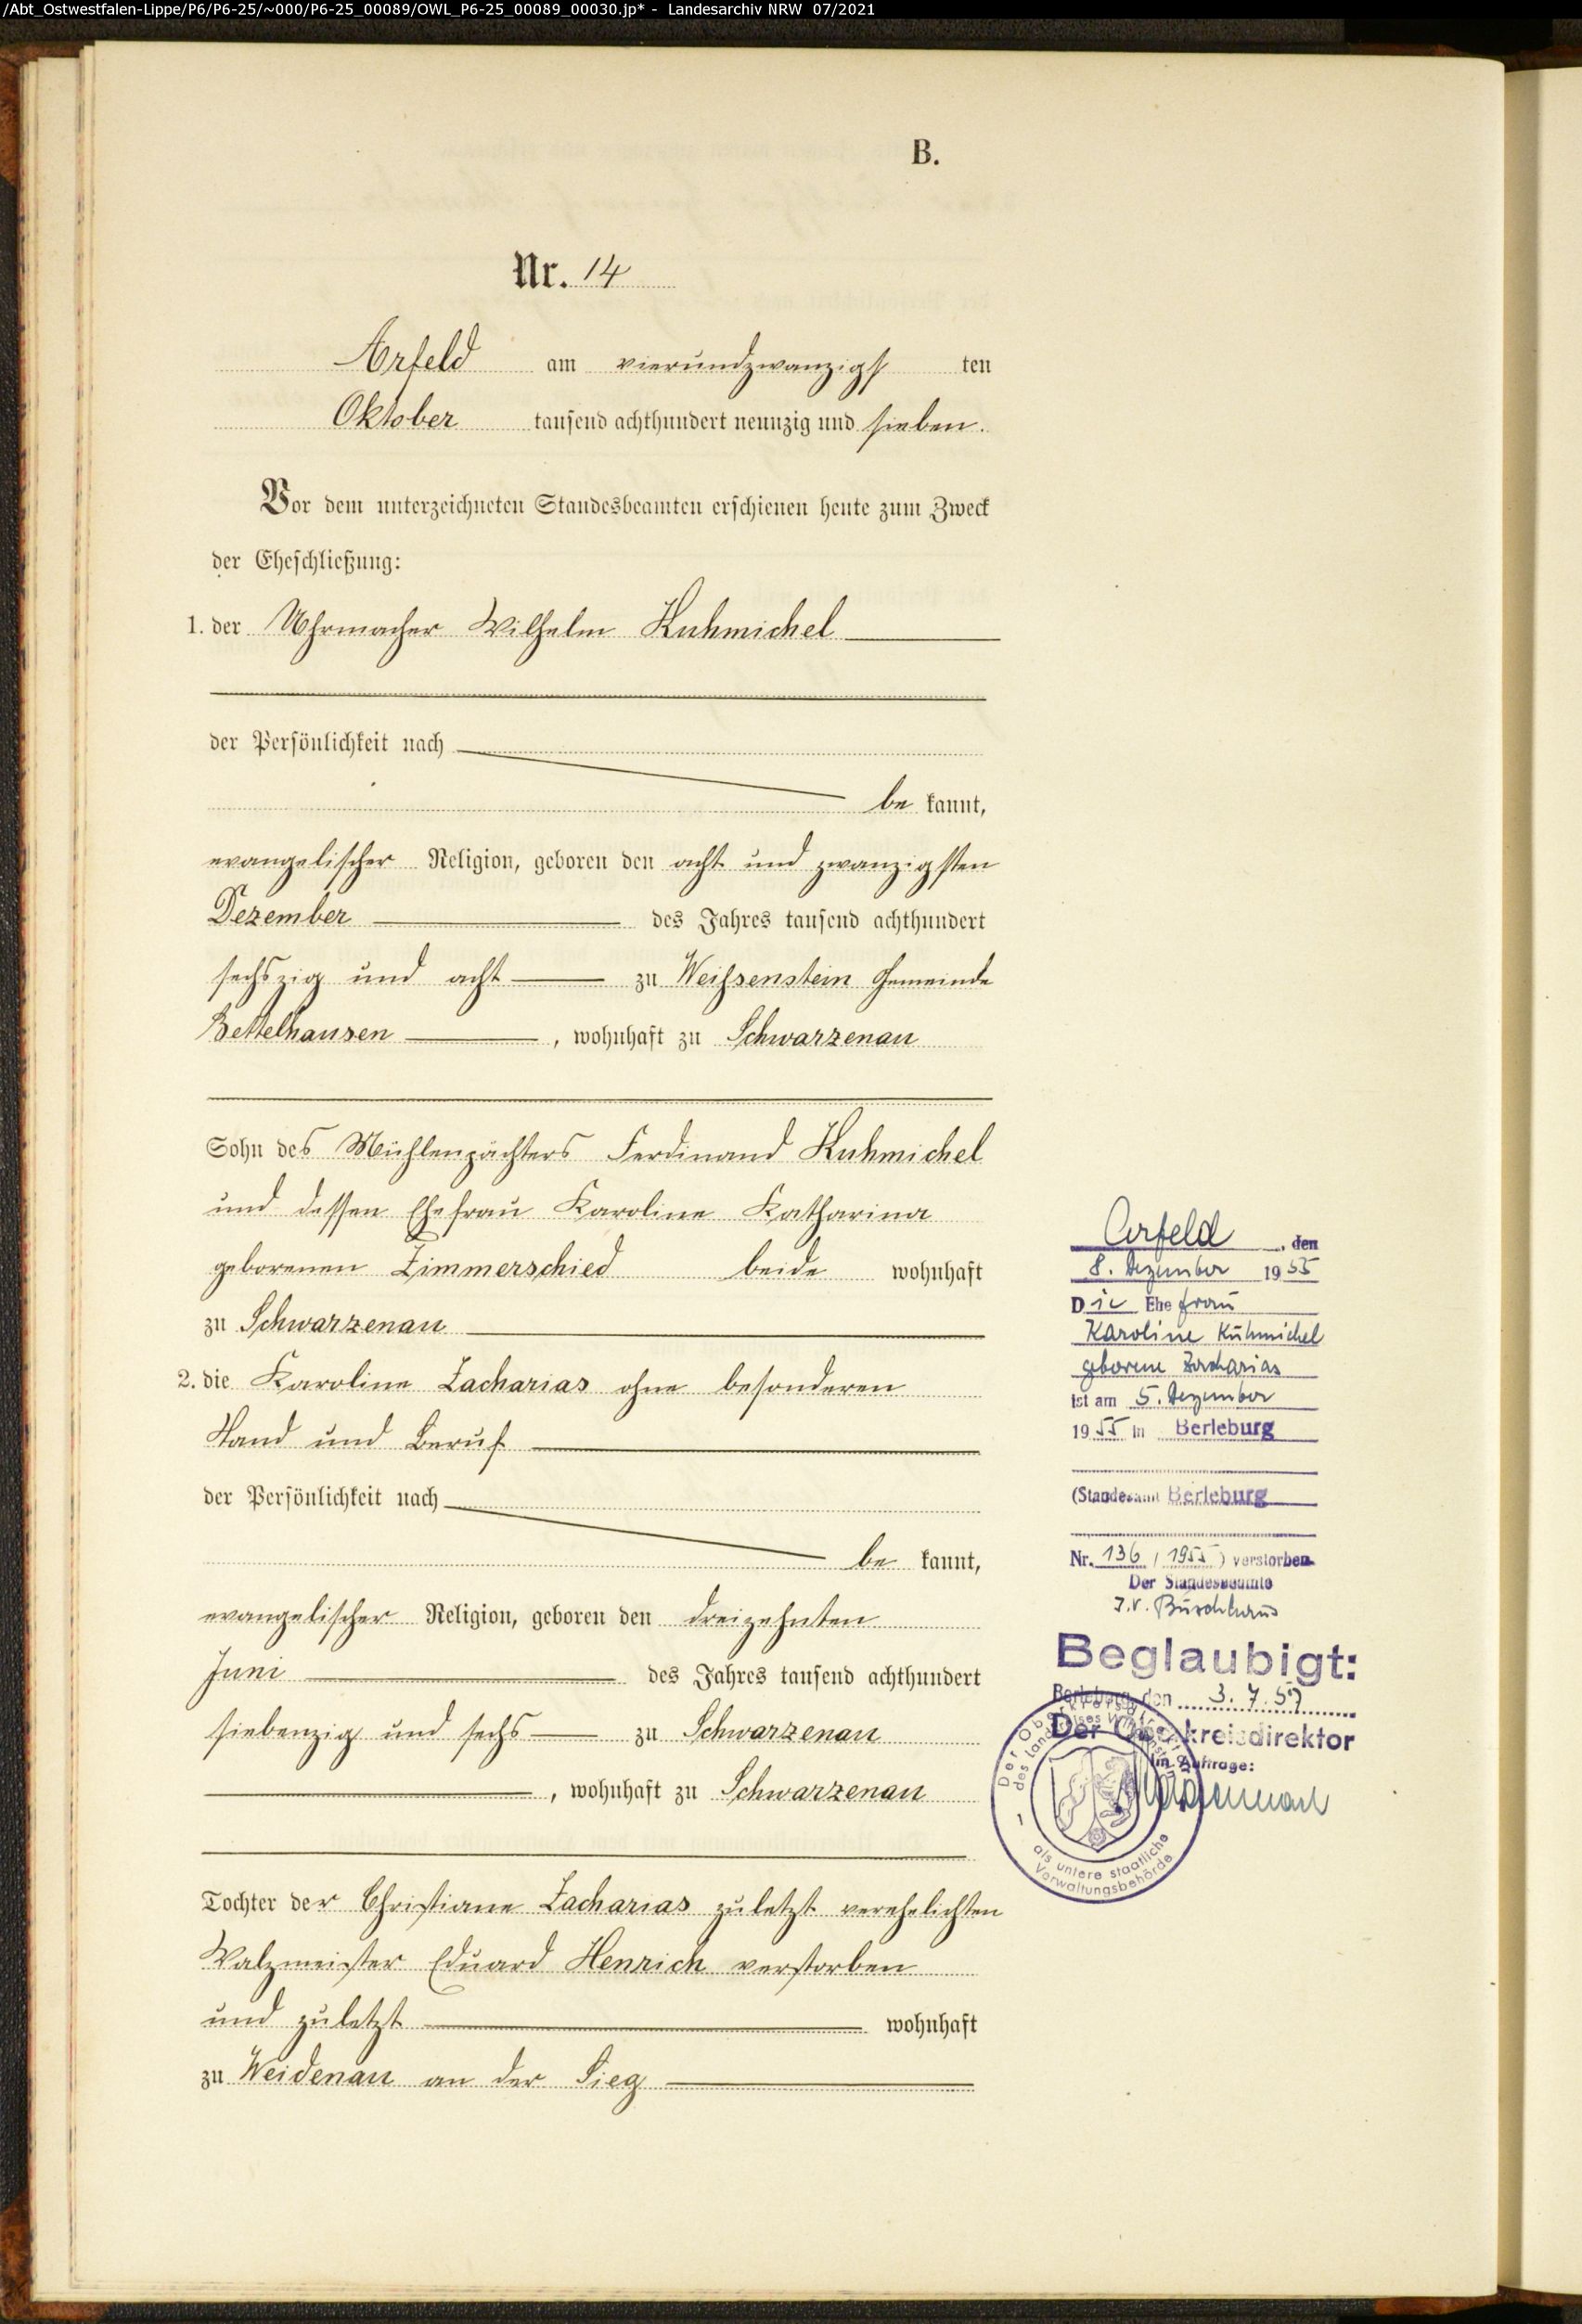 /Abt_Ostwestfalen-Lippe/P6/P6-25/~000/P6-25_00089/OWL_P6-25_00089_00030.jp* - Landesarchiv NRW 07/2021
B.
Nr. 14
Arfeld am vierundzwanzigs ten
Oktober tausend achthundert neunzig und sieben.
Vor dem unterzeichneten Standesbeamten erschienen heute zum Zweck
der Eheschließung:
1. der Uhrmacher Wilhelm Kuhmichel
der Persönlichkeit nach
be kannt,
evangelischer Religion, geboren den acht und zwanzigsten
Dezember des Jahres tausend achthundert
sechszig und acht zu Weißenstein Gemeinde
Bettelhausen, wohnhaft zu Schwarzenau
Sohn des Mühlenpächters Ferdinand Kuhmichel
und dessen Ehefrau Karoline Katharina
geborenen Zimmerschied beide wohnhaft
zu Schwarzenau
2. die Karoline Zacharias ohne besonderen
Stand und Beruf
der Persönlichkeit nach
be kannt,
evangelischer Religion, geboren den dreizehnten
Juni des Jahres tausend achthundert
siebenzig und sechs zu Schwarzenau
, wohnhaft zu Schwarzenau
Tochter der Christiane Zacharias zuletzt verehelichten
Walzmeister Eduard Henrich verstorben
und zuletzt wohnhaft
zu Weidenau an der Sieg
Arfeld, den
8. Dezember 1955
Die Ehefrau
Karoline Kuhmichel
geborene Zacharias
ist am 5. Dezember
1955 in Berleburg
(Standesamt Berleburg
Nr. 136 / 1955) verstorben
Der Standesbeamte
I.V. Buschhaus
Beglaubigt:
Berleburg, den 3. 7. 57
Der Oberkreisdirektor
Im Auftrage:
Der Oberkreisdirektor
des Landkreises Wittgenstein
als untere staatliche
Verwaltungsbehörde